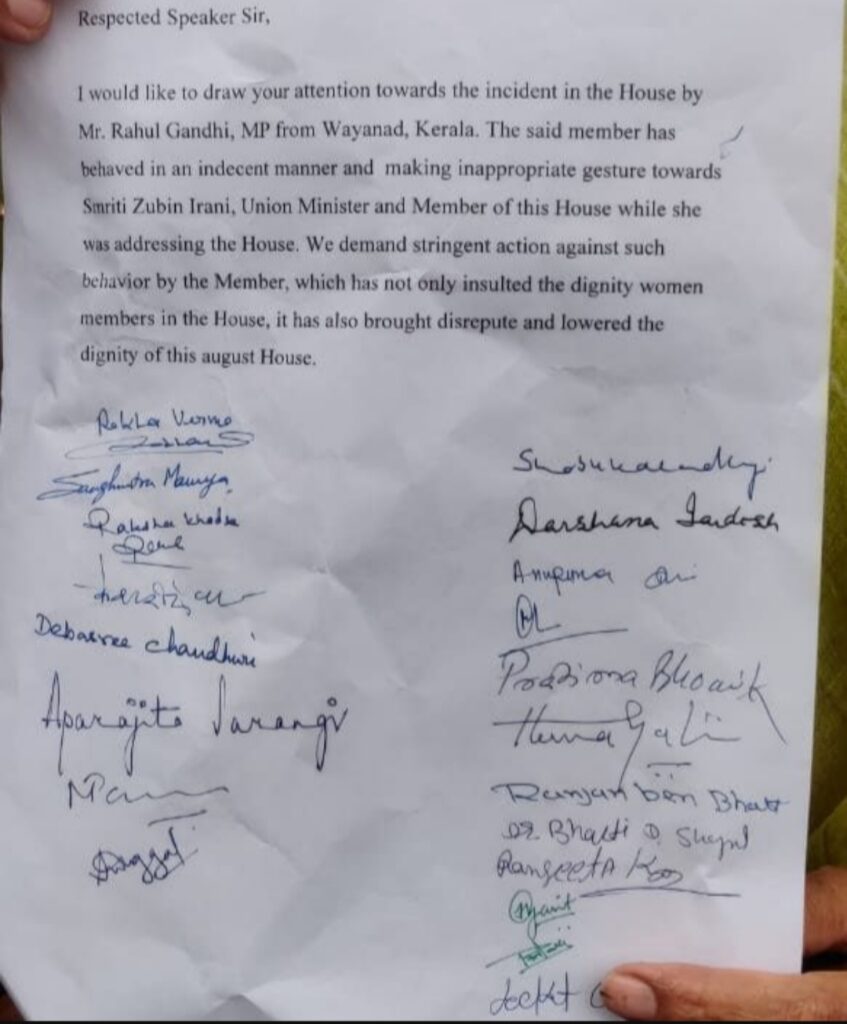 Respected Speaker Sir,
I would like to draw your attention towards the incident in the House by
Mr. Rahul Gandhi, MP from Wayanad, Kerala. The said member has
behaved in an indecent manner and making inappropriate gesture towards
Smriti Zubin Irani, Union Minister and Member of this House while she
was addressing the House. We demand stringent action against such
behavior by the Member, which has not only insulted the dignity women
members in the House, it has also brought disrepute and lowered the
dignity of this august House.
Rekha Verma
Sanghmitra Maurya
Raksha Khadse
Debasree Chaudhuri
Aparajita Sarangi
Darshana Jardosh
Anupriya
Pratima Bhoumik
Ranjan ben Bhatt
Dr. Bharti D. Shyal
Sangeeta